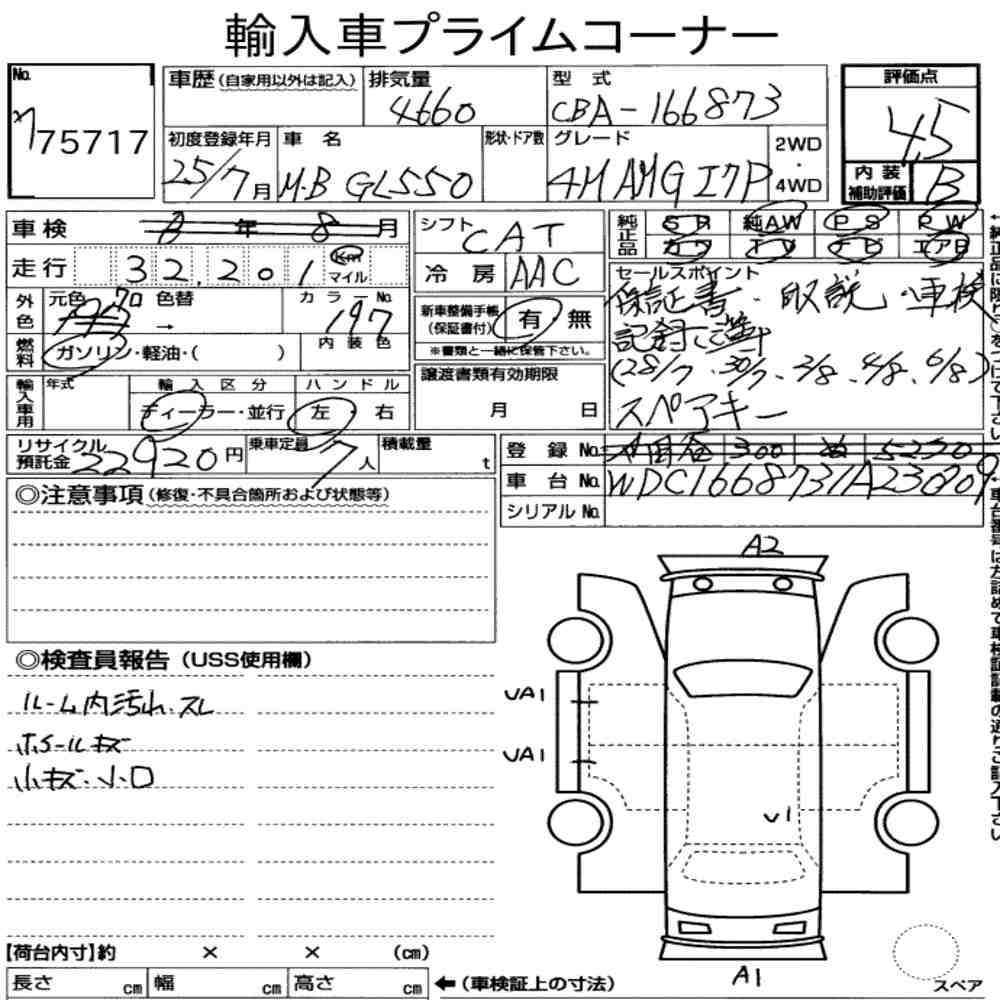 輸入車プライムコーナー
No. 75717
車歴 (自家用以外は記入)
排気量 4660
型式 CBA-166873
評価点 4.5
初度登録年月 25/7月
車名 M・B GL550
形状・ドア数
グレード 4M AMG エアP
2WD・4WD
内装補助評価 B
車検 8年8月
走行 32,201 Km マイル
シフト CAT
冷房 AAC
純正品 SR 純AW PS PW
カワ TV ナビ エアB
外色 元色 クロ 色替 →
カラーNo. 197
内装色
燃料 ガソリン・軽油・( )
新車整備手帳(保証書付) 有 無
※書類と一緒に保管下さい。
セールスポイント
保証書・取説・車検
記録簿
(28/7、30/7、2/8、4/8、6/8)
スペアキー
輸入車用 年式
輸入区分 ディーラー・並行
ハンドル 左・右
譲渡書類有効期限
月 日
リサイクル預託金 22920円
乗車定員 7人
積載量 t
登録No. 300 5230
車台No. WDC1668731A230909
シリアルNo.
◎注意事項 (修復・不具合箇所および状態等)
◎検査員報告 (USS使用欄)
ルーム内汚れ・スレ
ホイールキズ
小キズ・小凹
A2
UA1
UA1
U1
A1
スペア
【荷台内寸】約 × × (cm)
長さ cm 幅 cm 高さ cm ←(車検証上の寸法)